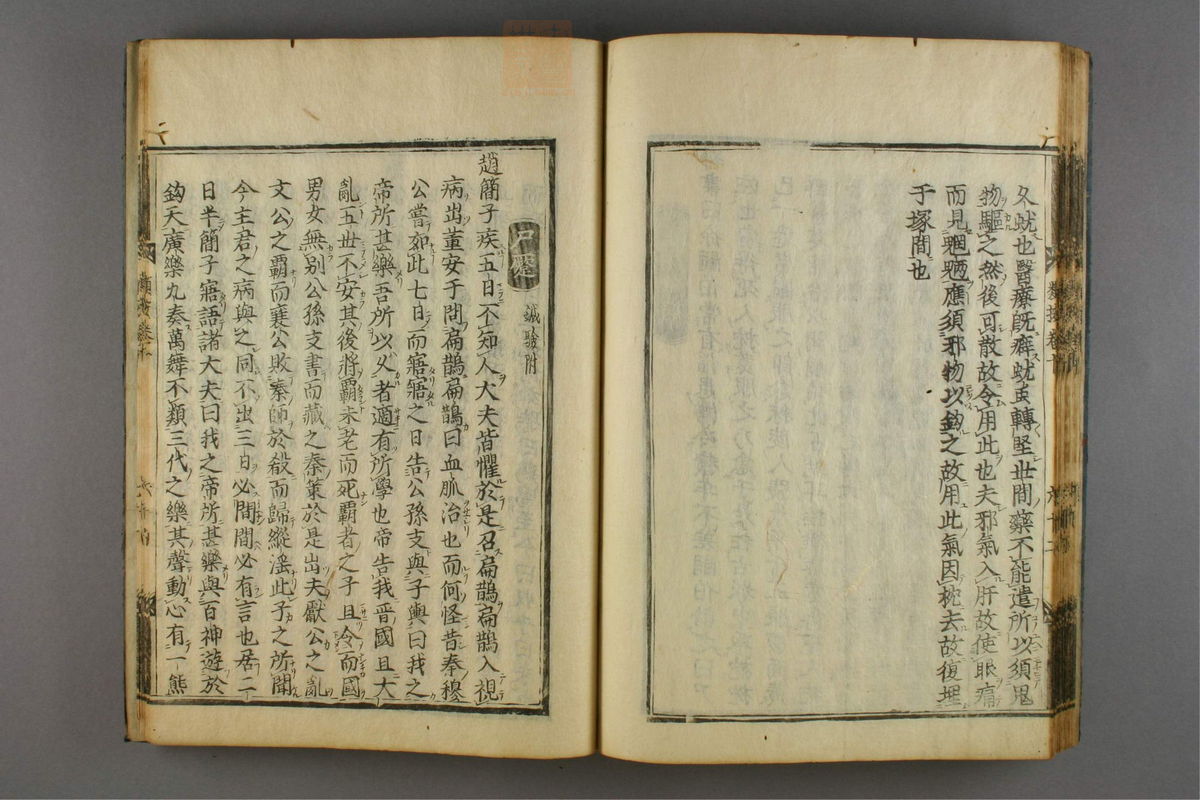 久蚘也醫療既癖蚘虫轉堅世間藥不能遣所以須鬼
物驅之然後可散故令用此也夫邪氣入肝故使眼痛
而見魍魎應須邪物以鈎之故用此氣因枕去故復埋
于塚間也
尸蹷 鍼驗附
趙簡子疾五日不知人大夫皆懼於是召扁鵲扁鵲入視
病出董安于問扁鵲扁鵲曰血脈治也而何怪昔秦穆
公嘗如此七日而寤寤之日告公孫支與子輿曰我之
帝所甚樂吾所以久者適有所學也帝告我晋國且大
亂五世不安其後將覇未老而死覇者之子且令而國
男女無别公孫支書而藏之秦策於是出夫獻公之亂
文公之覇而襄公敗秦師於殽而歸縱淫此子之所聞
今主君之病與之同不出三日必間間必有言也居二
日半簡子寤語諸大夫曰我之帝所甚樂與百神遊於
鈞天廣樂九奏萬舞不類三代之樂其聲動心有一熊